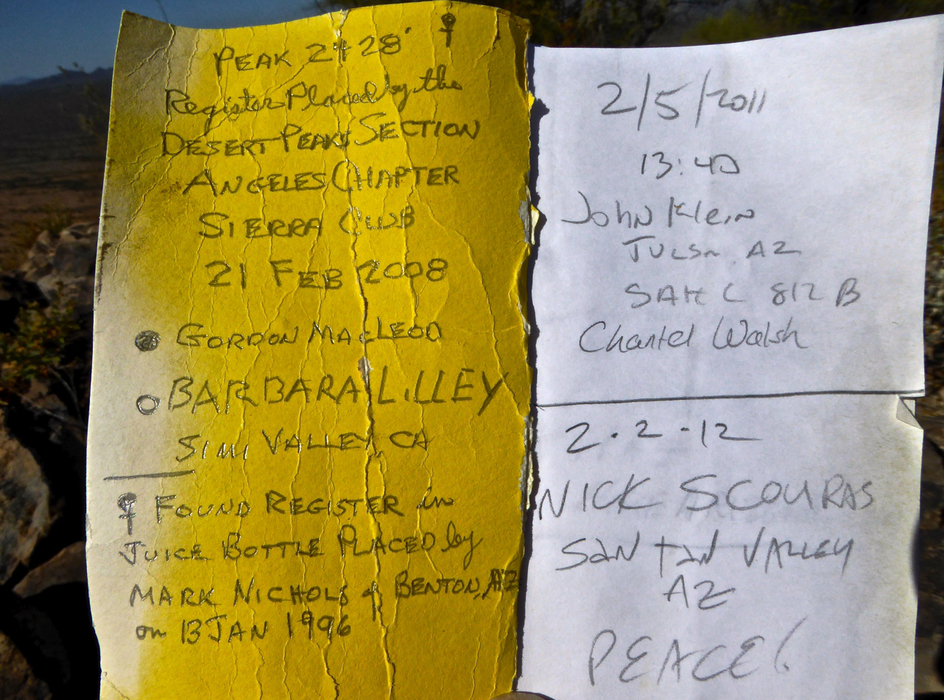 PEAK 2428'
Register Placed by the
DESERT PEAKS SECTION
ANGELES CHAPTER
SIERRA CLUB
21 FEB 2008
GORDON MACLEOD
BARBARA LILLEY
SIMI VALLEY, CA
FOUND REGISTER in
JUICE BOTTLE PLACED by
MARK NICHOLS of BENTON, AZ
on 13 JAN 1996
2/5/2011
13:40
John Klein
AZ
SAHC 812 B
Chantel Walsh
2.2.12
NICK SCOURAS
SAN TAN VALLEY
AZ
PEACE!